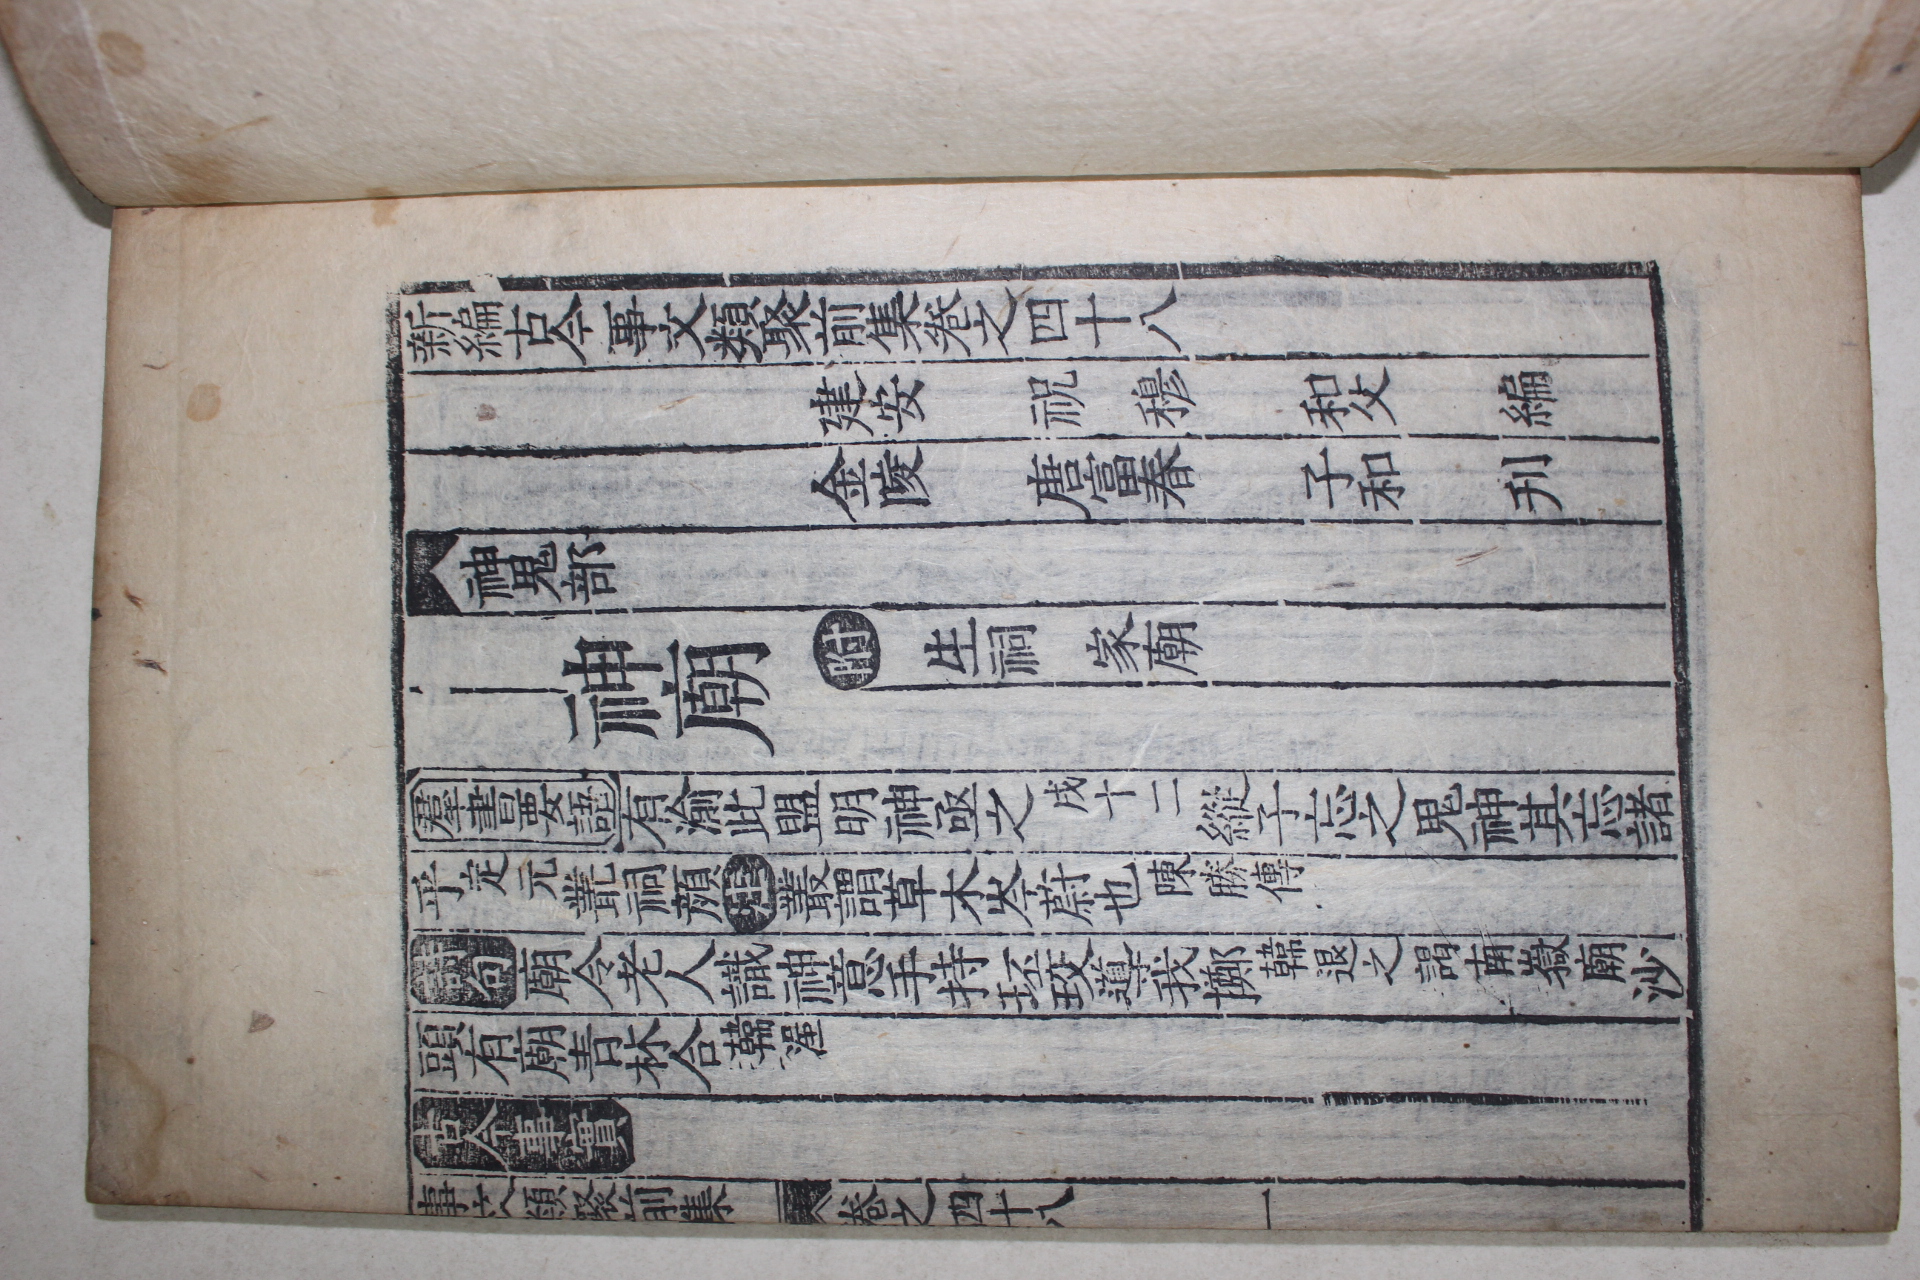 新編古今事文類聚前集卷之四十八
建安 祝 穆 和父 編
金陵 唐富春 子和 刋
神鬼部
神廟 附 生祠 家廟
羣書要語 有渝此盟明神亟之 戌十二 縱子忘之鬼神其忘諸
乎 定元 叢祠顔 註 叢謂草木岑蔚也 陳勝傳
詩句 廟令老人識神意手持珓珓導我擲 韓退之謁南嶽廟 沙
頭有廟青林合 韓渥
古今事實
事文類聚前集 卷之四十八 一